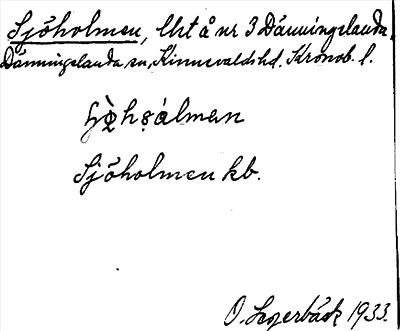 Sjöholmen, lht å nr 3 Dänningelanda,
Dänningelanda sn, Kinnevalds hd. Kronob. l.
Sjöholmen kb.
O. Segerbäck 1933.